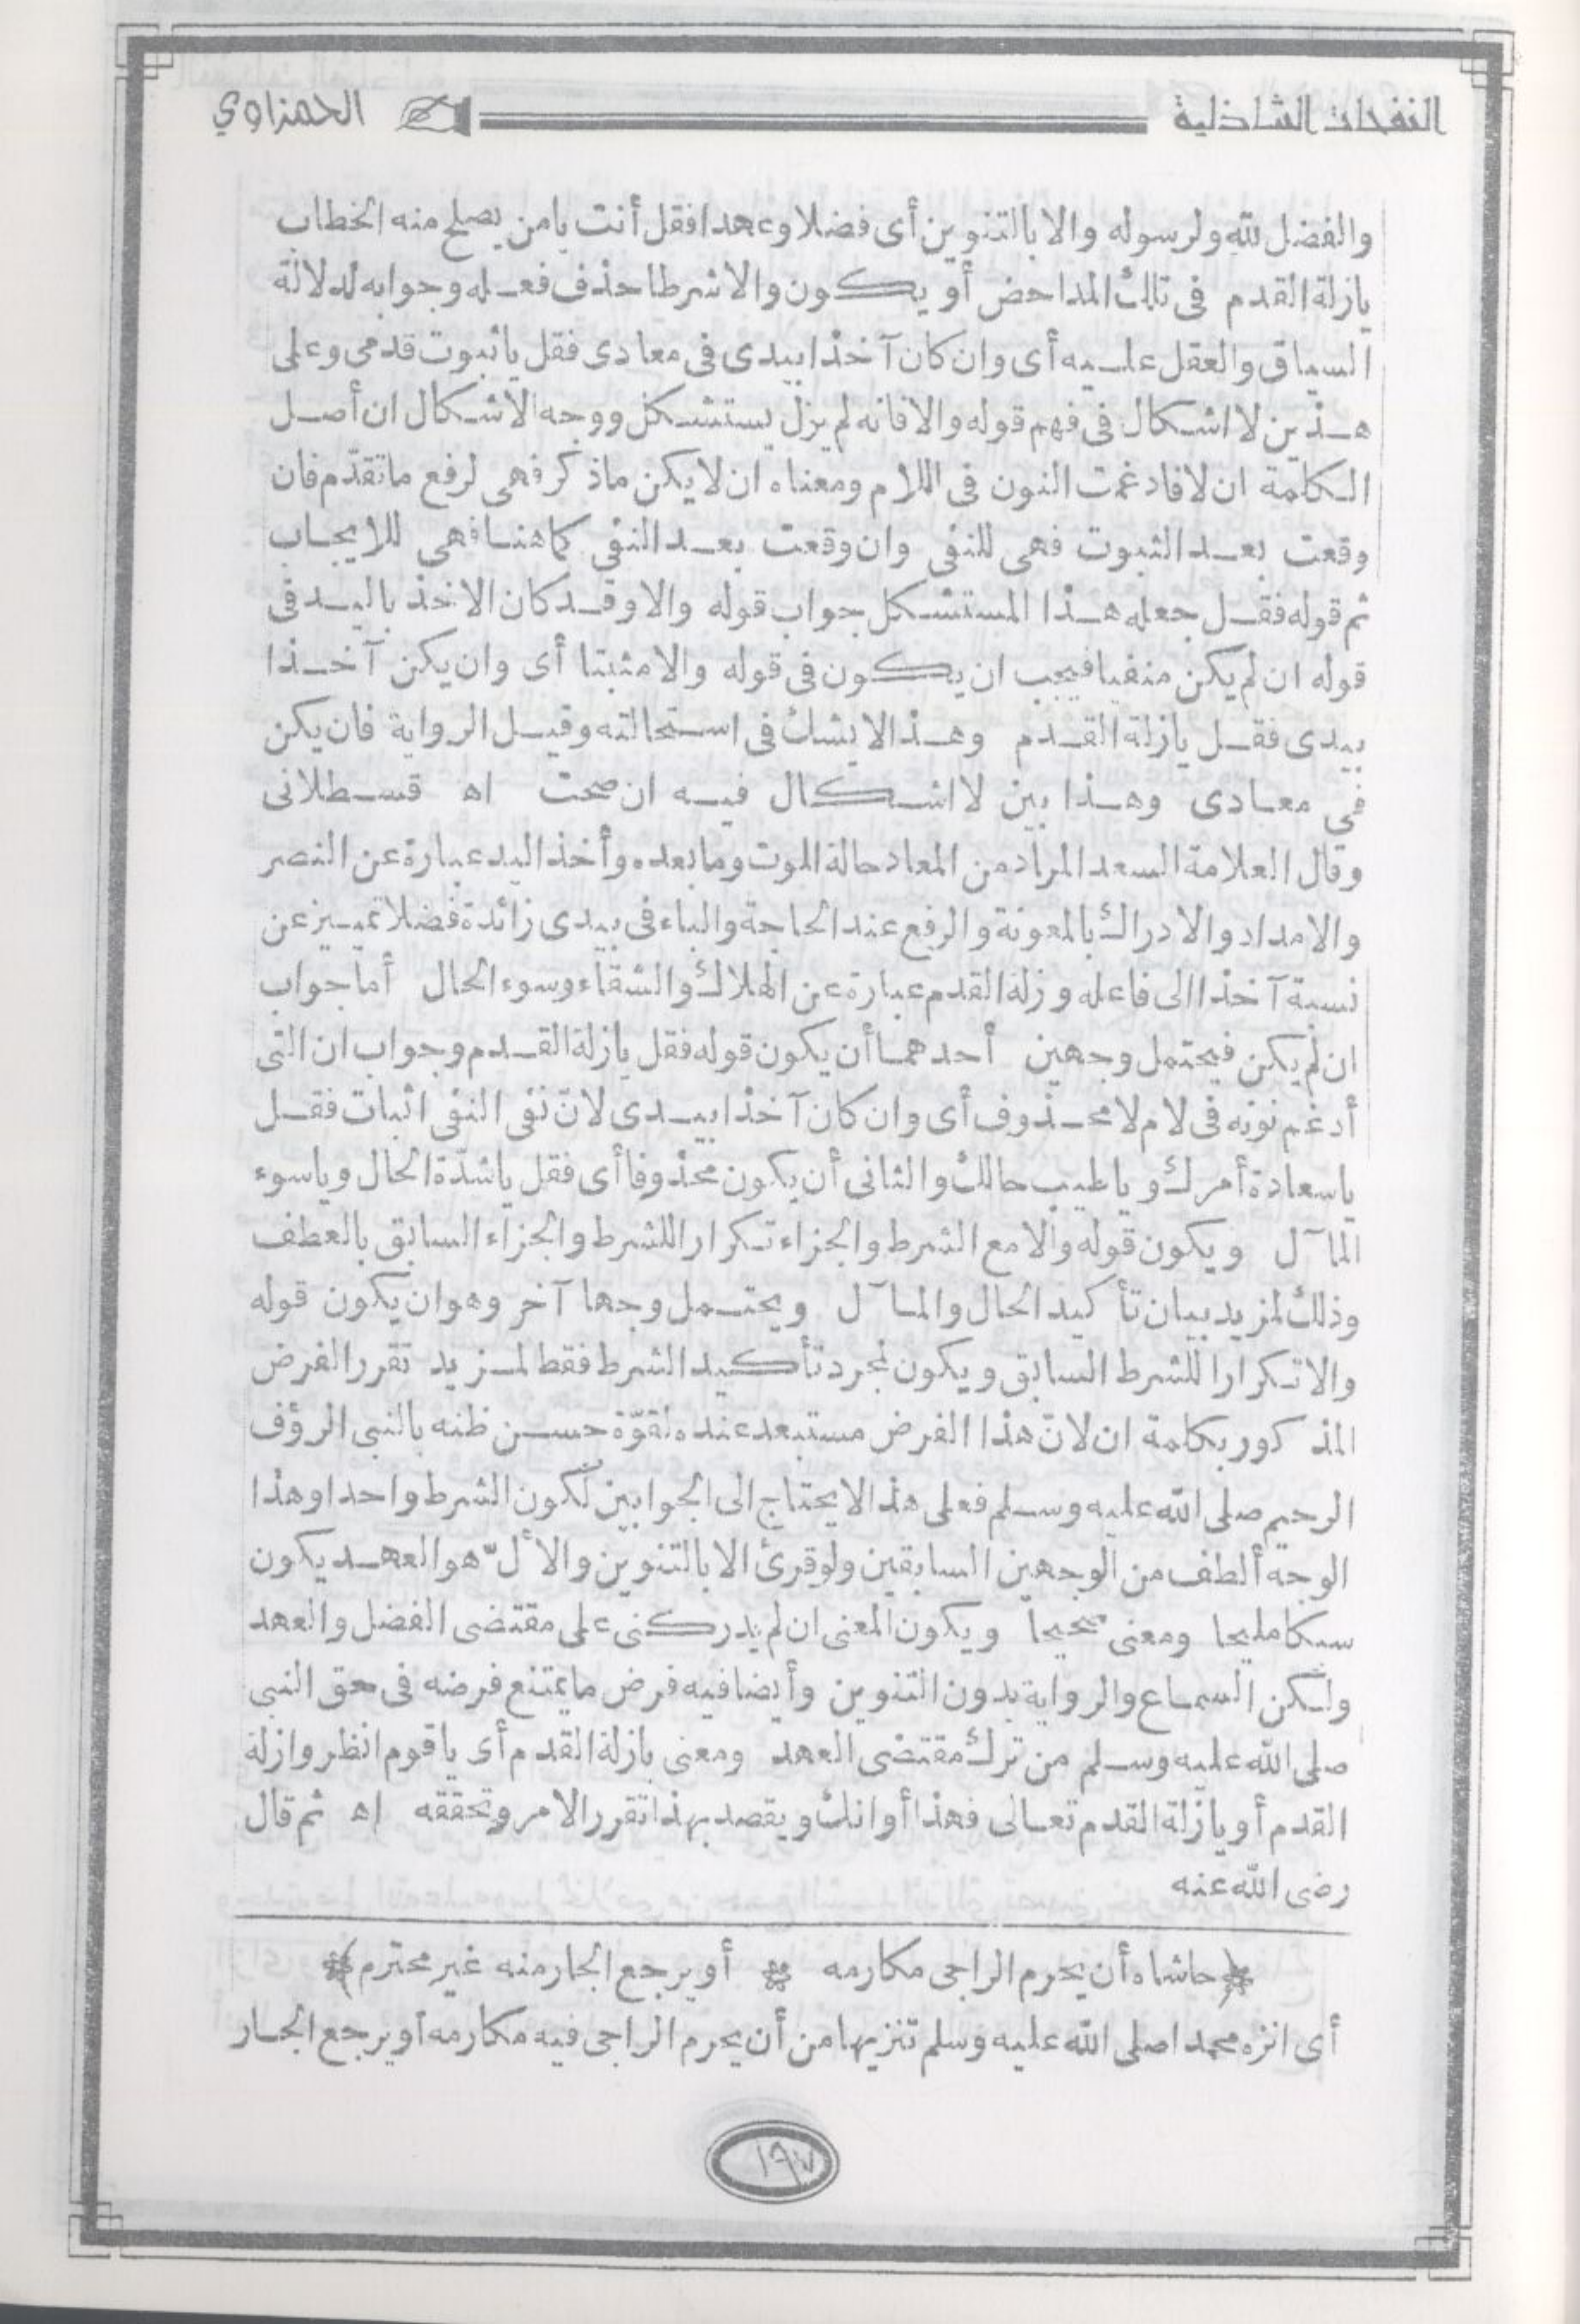 النفحات الشاذلية
الحمزاوي
والفضل لله ولرسوله والا بالتنوين أى فضلا وعهدا فقل أنت يامن يصلح منه الخطاب
يازلة القدم فى تلك المداحض أو يكون والا شرطا حذف فعله وجوابه لدلالة
السياق والعقل عليه أى وان كان آخذا بيدى فى معادى فقل ياثبوت قدمى وعلى
هذين لا اشكال فى فهم قوله والا فانه لم يزل يستشكل ووجه الاشكال ان أصل
الكلمة ان لا فادغمت النون فى اللام ومعناه ان لا يكن ماذكر فهى لرفع ماتقدّم فان
وقعت بعد الثبوت فهى للنفى وان وقعت بعد النفى كما هنا فهى للايجاب
ثم قوله فقل جعله هذا المستشكل جواب قوله والا وقد كان الاخذ باليد فى
قوله ان لم يكن منفيا فيجب ان يكون فى قوله والا مثبتا أى وان يكن آخذا
بيدى فقل يازلة القدم وهذا لا يشك فى استحالته وقيل الرواية فان يكن
فى معادى وهذا بين لا اشكال فيه ان صحت اه قسطلانى
وقال العلامة السعد المراد من المعاد حالة الموت وما بعده وأخذ اليد عبارة عن النصر
والامداد والادراك بالمعونة والرفع عند الحاجة والباء فى بيدى زائدة فضلا تمييز عن
نسبة آخذا الى فاعله وزلة القدم عبارة عن الهلاك والشقاء وسوء الحال أما جواب
ان لم يكن فيحتمل وجهين أحدهما أن يكون قوله فقل يازلة القدم وجواب ان التى
أدغم نونه فى لام لا محذوف أى وان كان آخذا بيدى لانّ نفى النفى اثبات فقل
ياسعادة أمرك وياطيب حالك والثانى أن يكون محذوفا أى فقل ياشدّة الحال وياسوء
المآل ويكون قوله والا مع الشرط والجزاء تكرارا للشرط والجزاء السابق بالعطف
وذلك لمزيد بيان تأكيد الحال والمآل ويحتمل وجها آخر وهو ان يكون قوله
والا تكرارا للشرط السابق ويكون لمجرد تأكيد الشرط فقط لمزيد تقرر الفرض
المذكور بكلمة ان لانّ هذا الفرض مستبعد عنده لقوّة حسن ظنه بالنبى الرؤف
الرحيم صلى الله عليه وسلم فعلى هذا لا يحتاج الى الجوابين لكون الشرط واحدا وهذا
الوجه ألطف من الوجهين السابقين ولو قرئ الا بالتنوين والالّ هو العهد يكون
سبكا مليحا ومعنى صحيحا ويكون المعنى ان لم يدركنى على مقتضى الفضل والعهد
ولكن السماع والرواية بدون التنوين وأيضا فيه فرض ما يمتنع فرضه فى حق النبى
صلى الله عليه وسلم من ترك مقتضى العهد ومعنى يازلة القدم أى ياقوم انظروا زلة
القدم أو يازلة القدم تعالى فهذا أوانك ويقصد بهذا تقرر الامر وتحققه اه ثم قال
رضى الله عنه
حاشاه أن يحرم الراجى مكارمه * أو يرجع الجار منه غير محترم
أى انزه محمدا صلى الله عليه وسلم تنزيها من أن يحرم الراجى فيه مكارمه أو يرجع الجار
١٩٧